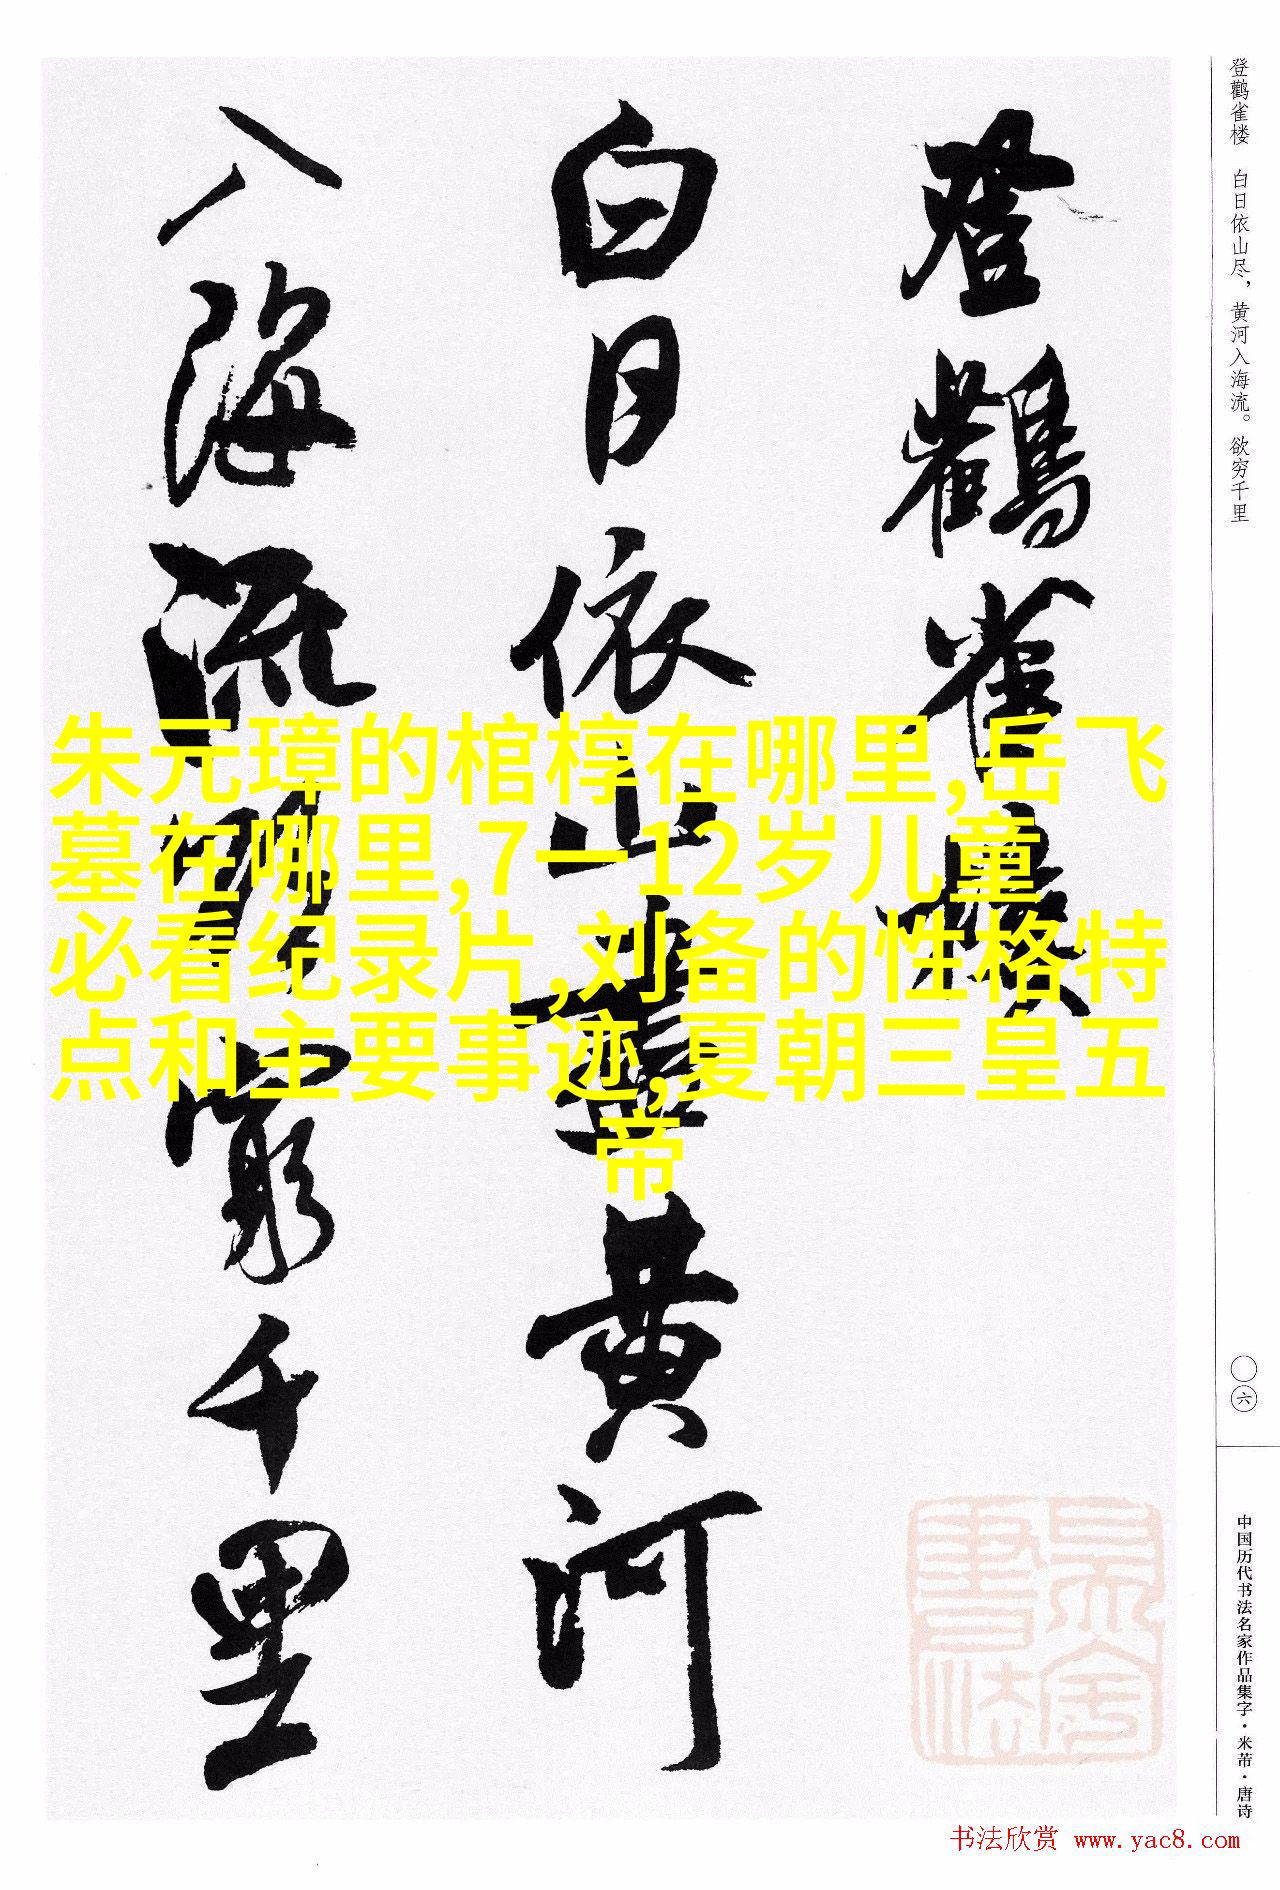 登鹳雀楼 白日依山尽，黄河入海流。欲穷千里
〇六
中国历代书法名家作品集字·米芾·唐诗
登鸛雀樓
白日依山盡黄河
入海流欲窮千里
朱元璋的棺椁在哪里,岳飞
墓在哪里,7一12岁儿童
必看纪录片,刘备的性格特
点和主要事迹,夏朝三皇五
帝
书法欣赏 www.yac8.com